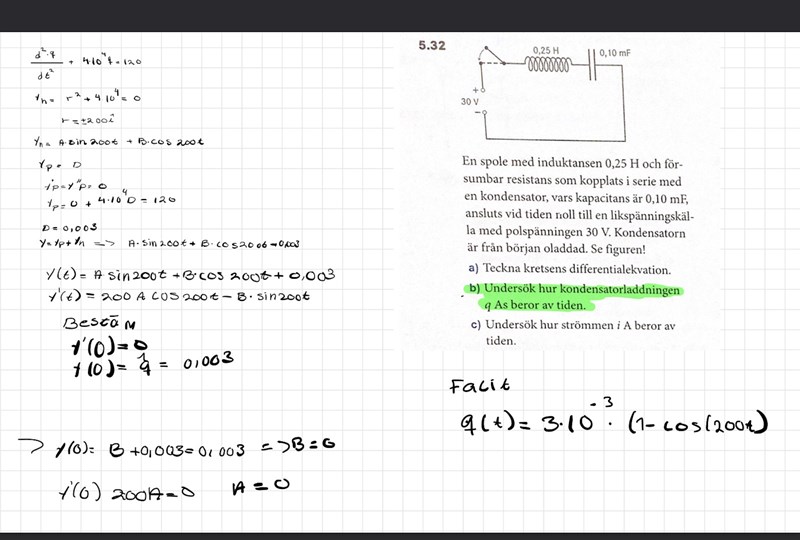 d²q/dt² + 4·10⁴q = 120
Yh = r² + 4·10⁴ = 0
r = ±200i
Yh = A·sin200t + B·cos200t
Yp = D
Y'p = Y''p = 0
Yp = 0 + 4·10⁴D = 120
D = 0,003
Y = Yp + Yh => A·sin200t + B·cos200t + 0,003
Y(t) = A sin200t + B·cos 200t + 0,003
Y'(t) = 200 A cos 200t – B·sin200t
Bestäm
Y'(0) = 0
Y(0) = q̂ = 0,003
=> Y(0) = B + 0,003 = 0,003 => B = 0
Y'(0) 200A = 0 A = 0
5.32
0,25 H
0,10 mF
+
30 V
–
En spole med induktansen 0,25 H och för-
sumbar resistans som kopplats i serie med
en kondensator, vars kapacitans är 0,10 mF,
ansluts vid tiden noll till en likspänningskäl-
la med polspänningen 30 V. Kondensatorn
är från början oladdad. Se figuren!
a) Teckna kretsens differentialekvation.
b) Undersök hur kondensatorladdningen
q As beror av tiden.
c) Undersök hur strömmen i A beror av
tiden.
Facit
q(t) = 3·10⁻³·(1–cos(200t)